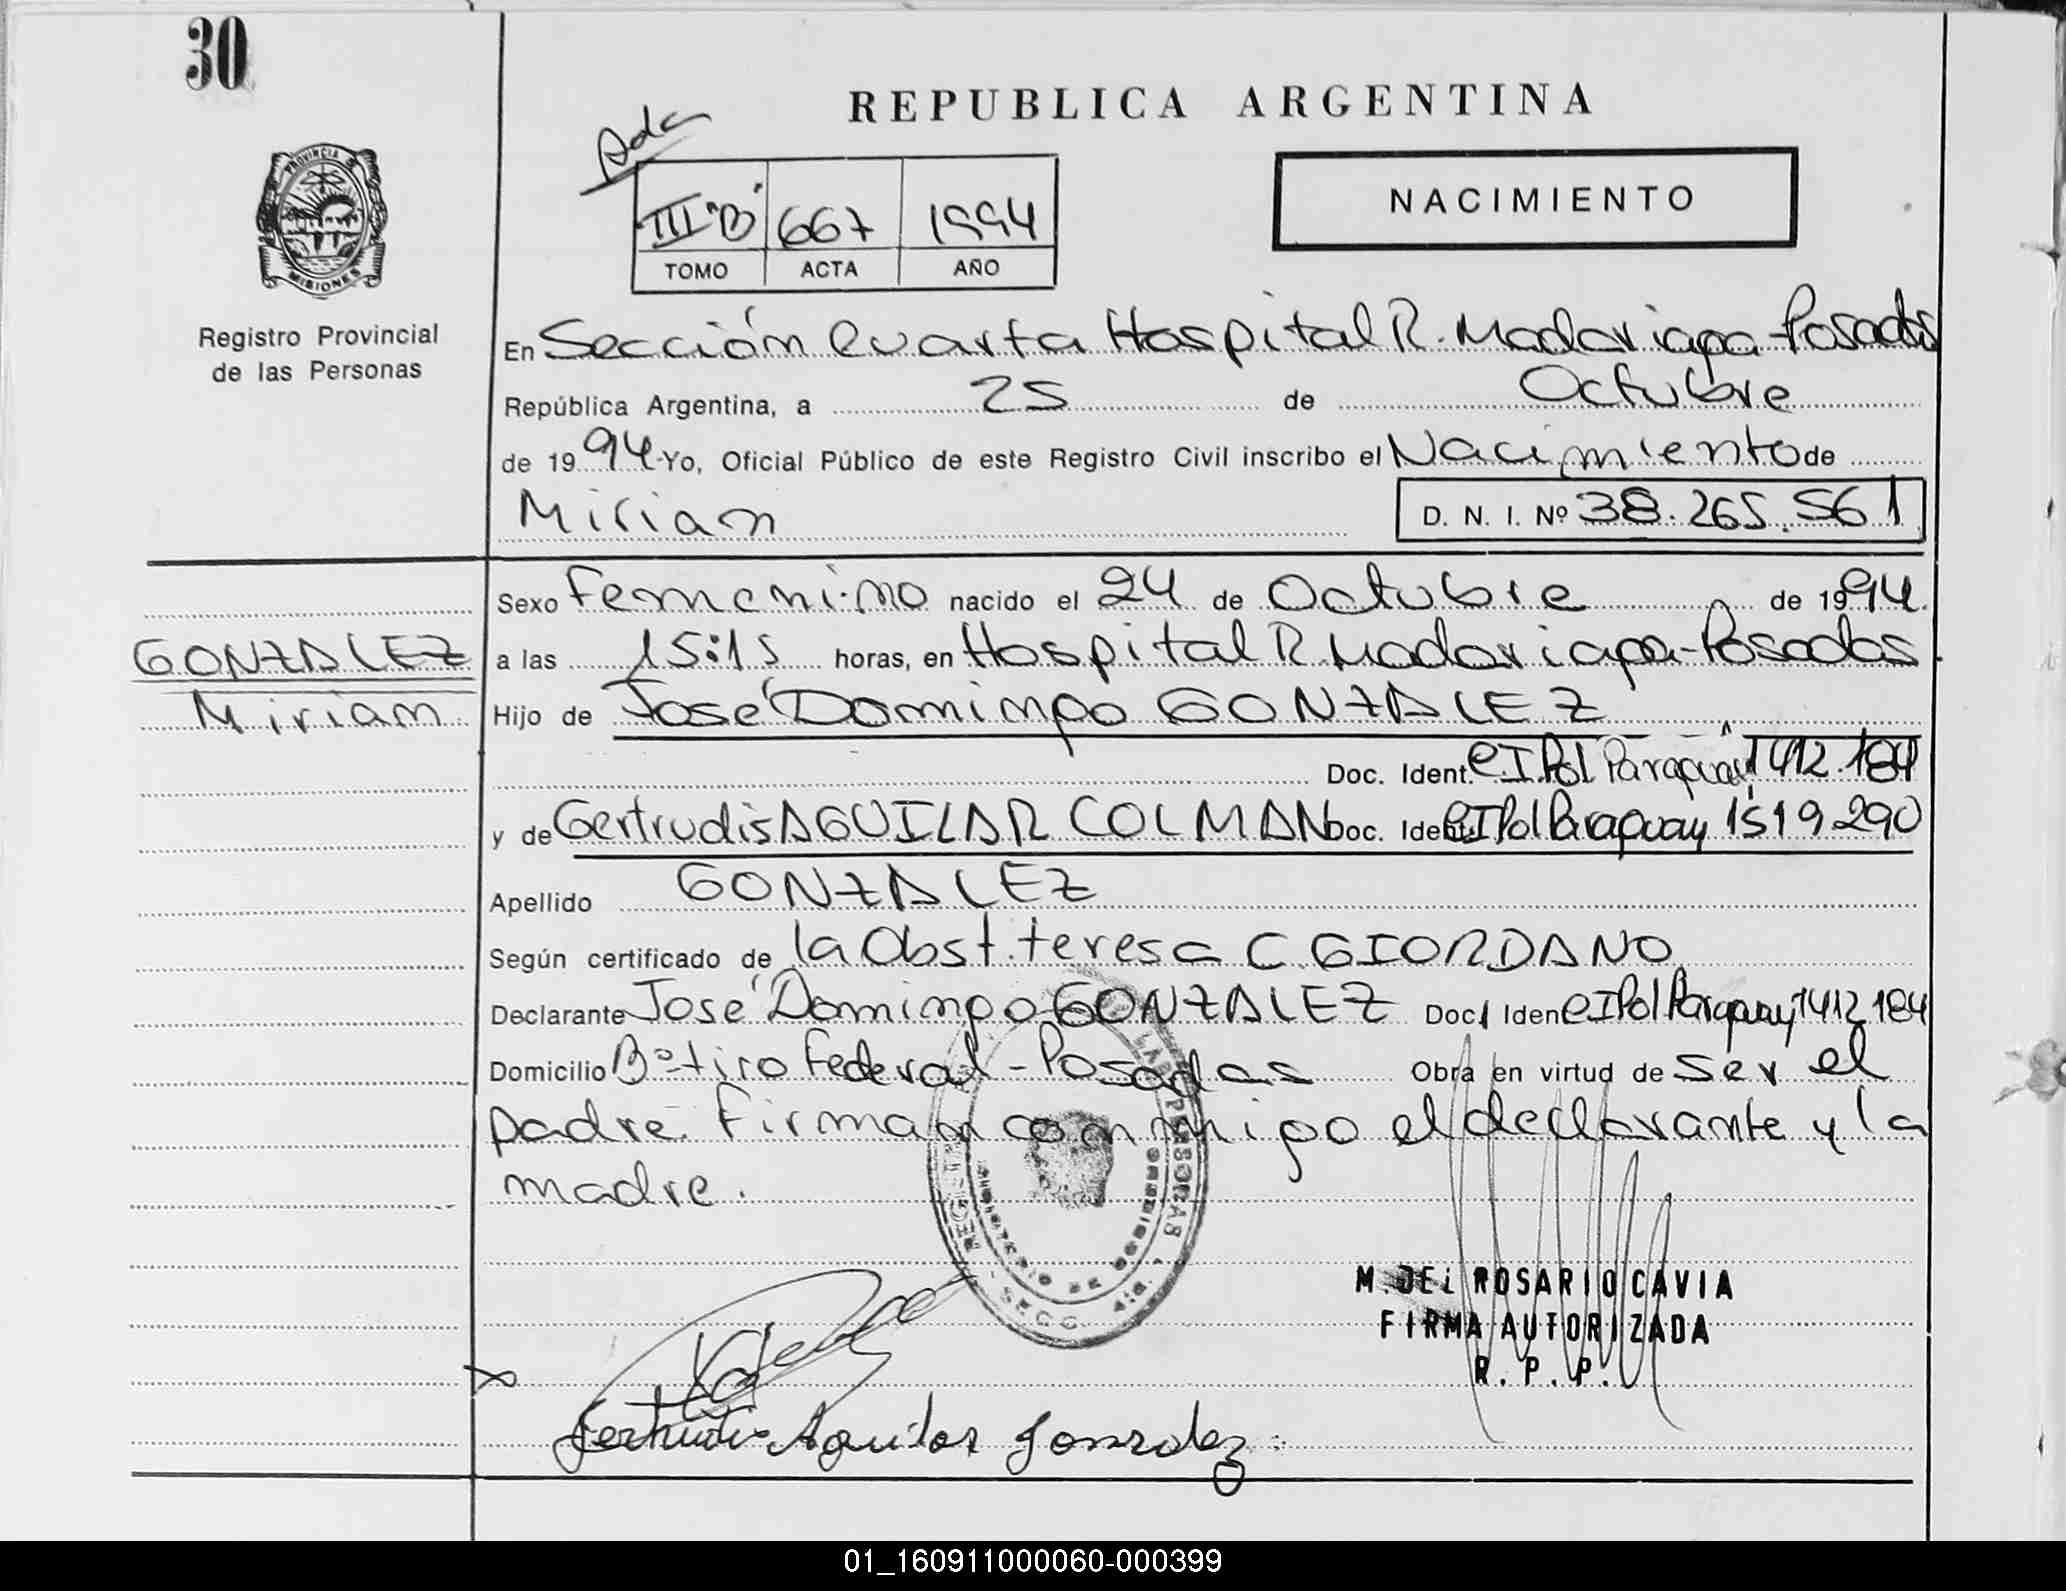 30
REPUBLICA ARGENTINA
Ada
III "B" 667 1994
TOMO ACTA AÑO
NACIMIENTO
PROVINCIA DE
MISIONES
Registro Provincial
de las Personas
En Sección Cuarta Hospital R. Madariaga-Posadas
República Argentina, a 25 de Octubre
de 1994 Yo, Oficial Público de este Registro Civil inscribo el Nacimiento de
Mirian D. N. I. Nº 38.265.561
Sexo Femenino nacido el 24 de Octubre de 1994.
GONZALEZ
Miriam
a las 15:15 horas, en Hospital R. Madariaga-Posadas
Hijo de José Domingo GONZALEZ
Doc. Ident. CIPol Paraguay 1412.184
y de Gertrudis AGUILAR COLMAN Doc. Ident. CIPol Paraguay 1519290
Apellido GONZALEZ
Según certificado de la Obst. teresa C. GIORDANO
Declarante José Domingo GONZALEZ Doc. Iden CIPol Paraguay 1412184
Domicilio Bº tiro Federal - Posadas Obra en virtud de ser el
padre. Firman conmigo el declarante y la
madre.
M. DEL ROSARIO CAVIA
FIRMA AUTORIZADA
R. P. P.
Gertrudis Aguilar Gonzalez
01_160911000060-000399